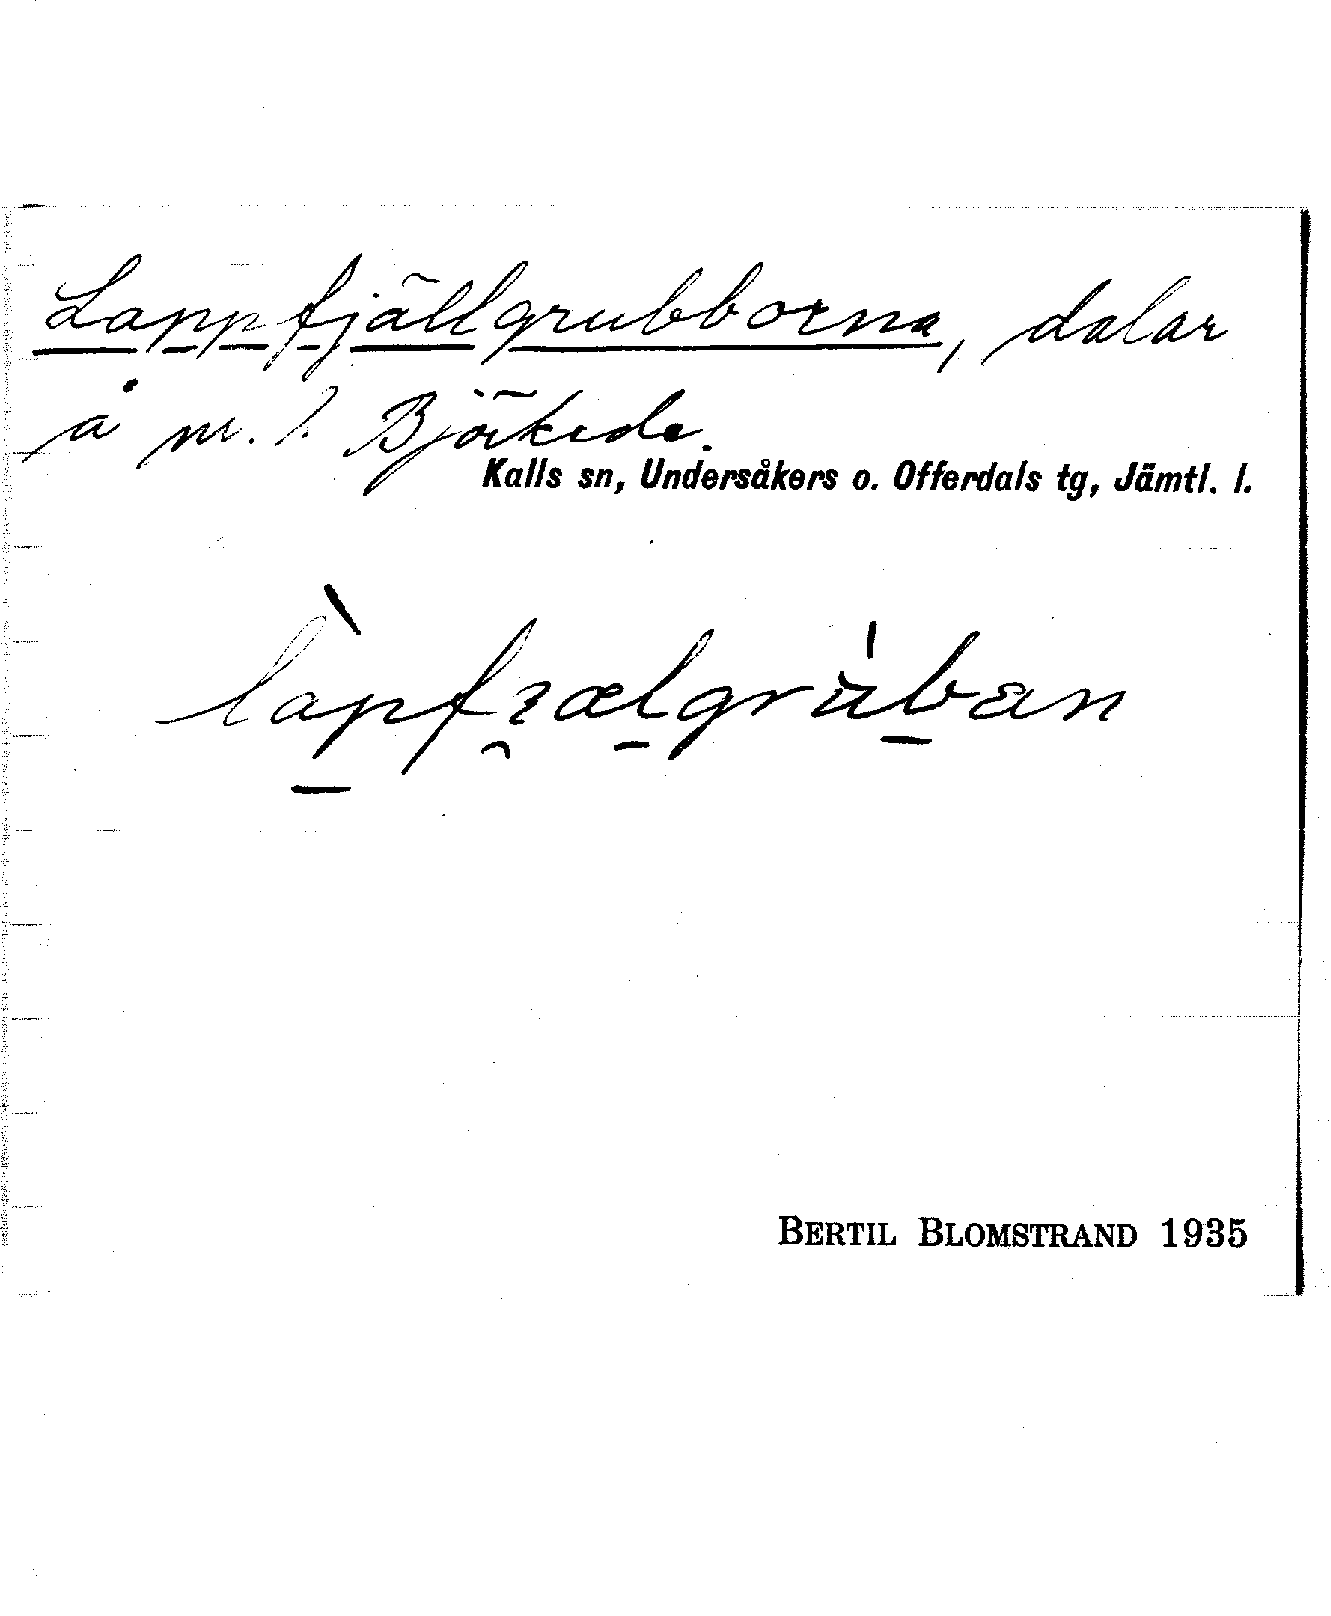 Lappfjällgrubborna, dalar
å nr. 1. Björkede.
Kalls sn, Undersåkers o. Offerdals tg, Jämtl. l.
BERTIL BLOMSTRAND 1935